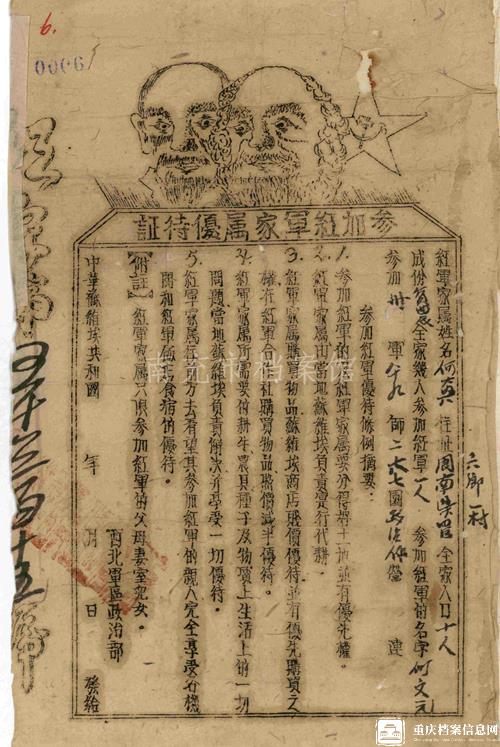 6.
0006
参加紅軍家属優待証
紅軍家属姓名何 住址 全家人口十人
成份 全家幾人参加紅軍一人 参加紅軍的名字何文元
参加卅軍 師二六七團政治 營 連
六鄉一村
参加紅軍優待條例摘要：
1. 参加紅軍的紅軍家属要分得好土地並有優先權。
2. 紅軍家属土地當地蘇維埃負責實行代耕。
3. 紅軍家属購買物品蘇維埃商店賤價優待並有優先購買之
權在紅軍合作社購買物品照價減半優待。
4. 紅軍家属所需要的耕牛農具種子及物質上生活上的一切
問題當地蘇維埃負責解決并享受一切優待。
5. 紅軍家属在前方去看望其参加紅軍的親人完全享受各機
關和紅軍飯店食宿的優待。
【附註】紅軍家属只限参加紅軍的父母妻室兒女。
西北軍區政治部
中華蘇維埃共和國 年 月 日 發給
字第 号
南充市档案馆
重庆档案信息网